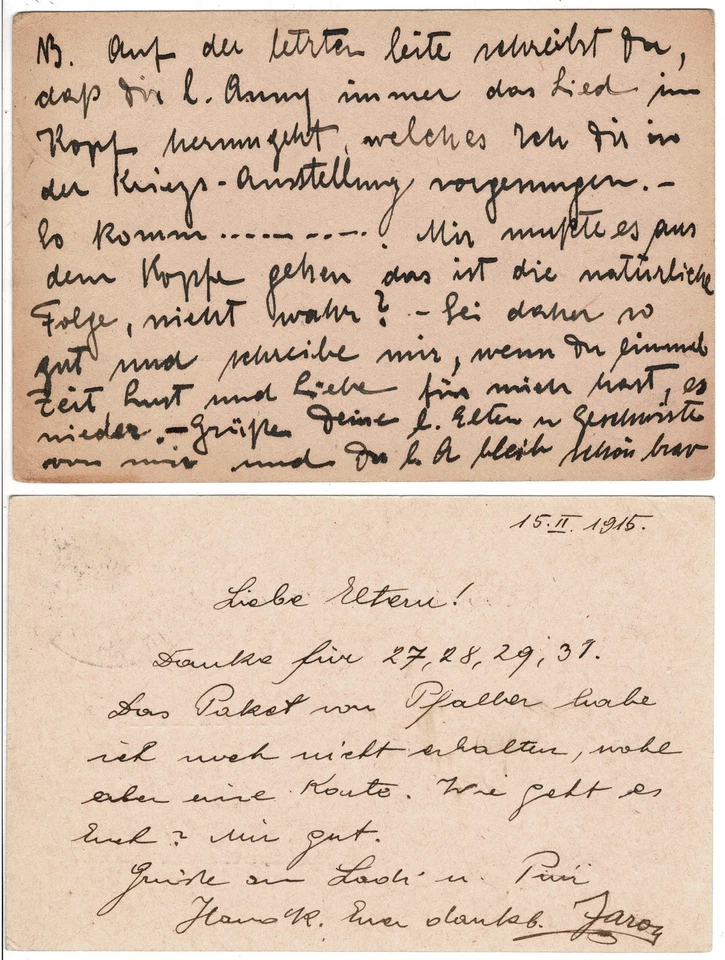 NB. Auf der letzten Seite schreibst Du,
daß Dir l. Anny immer das Lied im
Kopf herumgeht, welches Ich Dir in
der Kriegs-Ausstellung vorgesungen. -
So komm ----------! Mir mußte es aus
dem Kopfe gehen das ist die natürliche
Folge, nicht wahr? - Sei daher so
gut und schreibe mir, wenn Du einmal
Zeit Lust und Liebe für mich hast, es
nieder. - Grüße Deine l. Eltern u Geschwister
von mir und Du l. A bleib schön brav
15.II. 1915.
Liebe Eltern!
Danke für 27, 28, 29, 31.
Das Paket von Pfalber habe
ich noch nicht erhalten, wohl
aber eine Karte. Wie geht es
Euch? Mir gut.
Grüße an Ladi u.
Euer dankb.